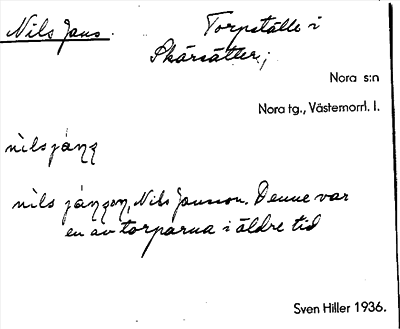 Nils Jans. Torpställe i
Skärsätter;
Nora s:n
Nora tg., Västernorrl. l.
nils jáŋʒ
nils jáŋʒon, Nils Jansson. Denne var
en av torparna i äldre tid
Sven Hiller 1936.